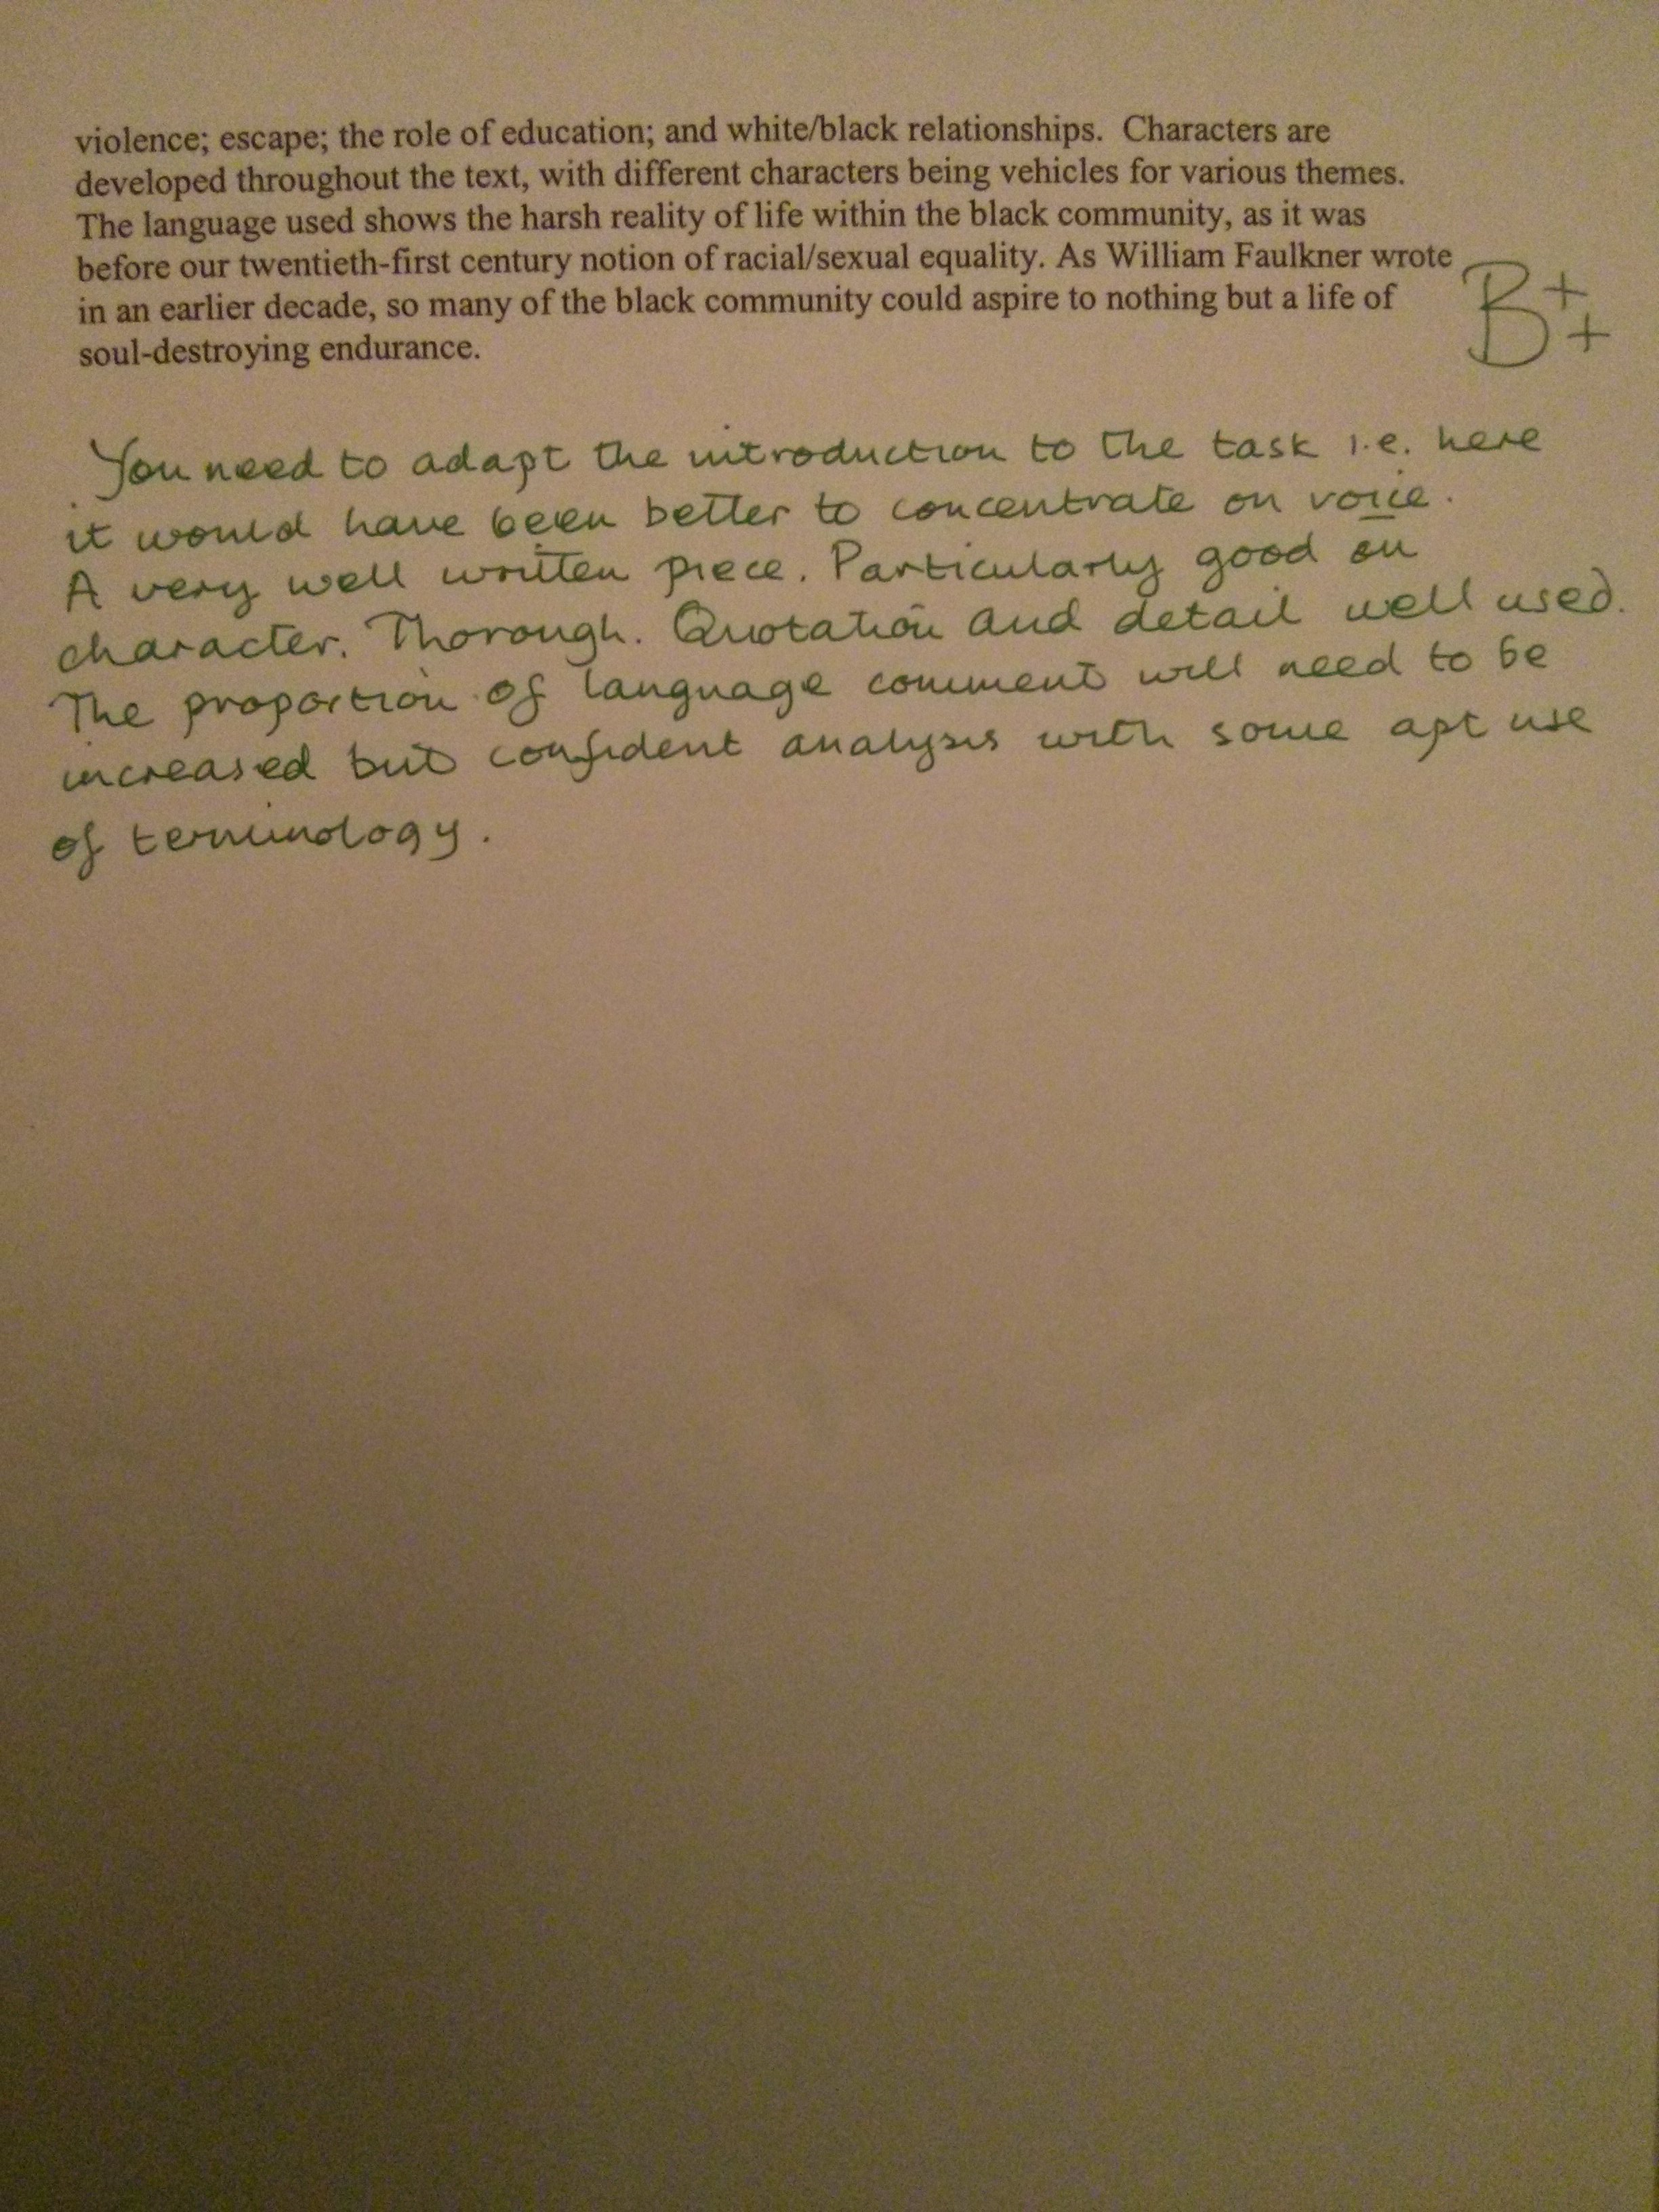 violence; escape; the role of education; and white/black relationships.  Characters are
developed throughout the text, with different characters being vehicles for various themes.
The language used shows the harsh reality of life within the black community, as it was
before our twentieth-first century notion of racial/sexual equality. As William Faulkner wrote
in an earlier decade, so many of the black community could aspire to nothing but a life of
soul-destroying endurance.
B++
You need to adapt the introduction to the task i.e. here
it would have been better to concentrate on voice.
A very well written piece. Particularly good on
character. Thorough. Quotation and detail well used.
The proportion of language comment will need to be
increased but confident analysis with some apt use
of terminology.